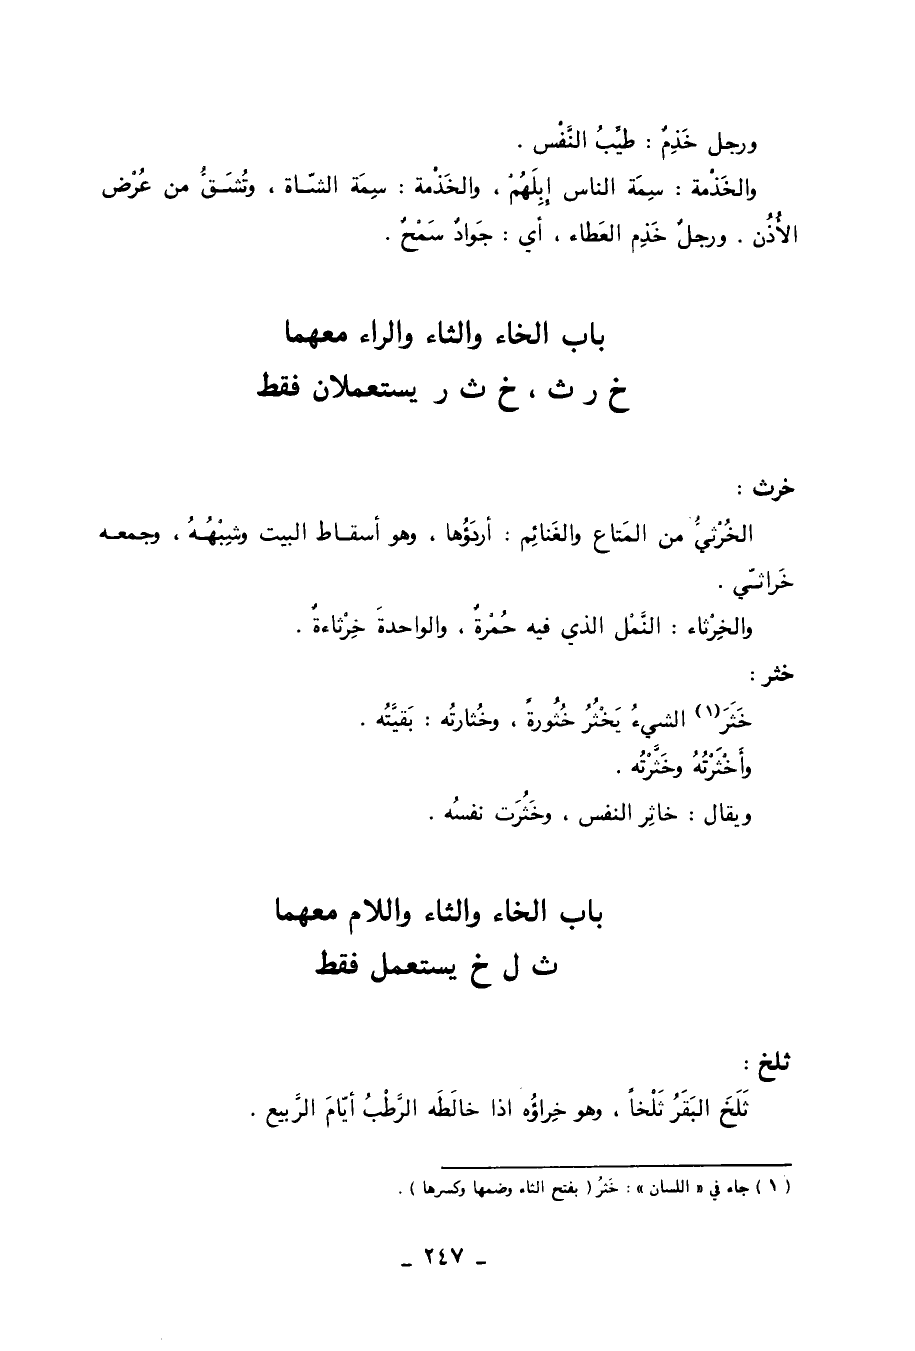 ورجل خَذِمٌ : طَيِّبُ النَّفْس .
والخَذْمة : سِمَة الناس إبِلَهُمْ ، والخَذْمة : سِمَة الشّاة ، وتُشَقُّ من عُرْض
الأُذُن . ورجلٌ خَذِم العَطاء ، أي : جَوادٌ سَمْحٌ .
باب الخاء والثاء والراء معهما
خ ر ث ، خ ث ر يستعملان فقط
خرث :
الخُرْثيُّ من المَتاع والغَنائِم : أردَؤُها ، وهو أسقاط البيت وشِبْهُهُ ، وجمعه
خَراثيّ .
والخِرْثاء : النَّمْل الذي فيه حُمْرةٌ ، والواحدةَ خِرْثاءةٌ .
خثر :
خَثَرَ(١) الشيءُ يَخْثُرُ خُثُورةً ، وخُثارتُه : بَقيَّتُه .
وأَخْثَرْتُهُ وخَثَّرْتُه .
ويقال : خاثِر النفس ، وخَثُرَت نفسُه .
باب الخاء والثاء واللام معهما
ث ل خ يستعمل فقط
ثلخ :
ثَلَخَ البَقَرُ ثَلْخاً ، وهو خِراؤُه اذا خالَطَه الرَّطْبُ أيّامَ الرَّبيع .
( ١ ) جاء في « اللسان » : خَثرُ ( بفتح الثاء وضمها وكسرها ) .
ـ ٢٤٧ ـ